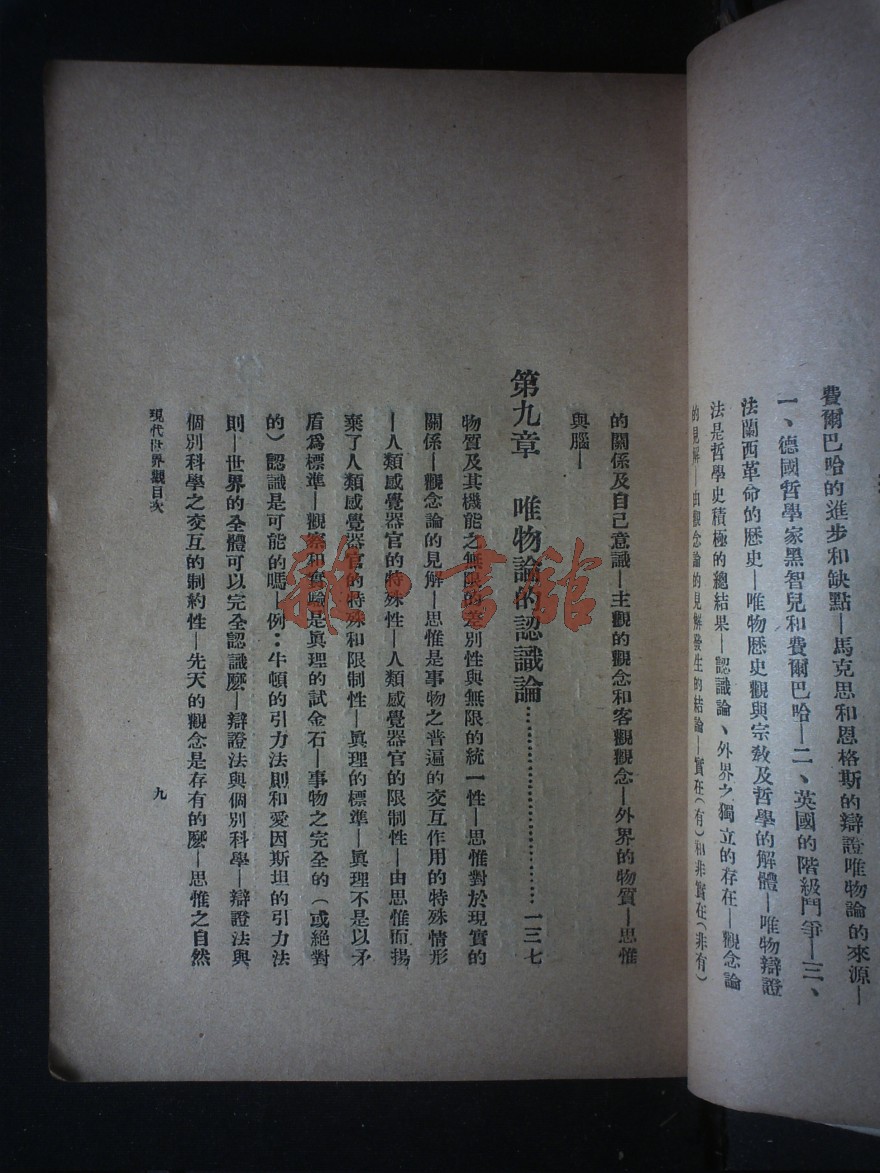 費爾巴哈的進步和缺點—馬克思和恩格斯的辯證唯物論的來源—
一、德國哲學家黑智兒和費爾巴哈—二、英國的階級鬥爭—三、
法蘭西革命的歷史—唯物歷史觀與宗教及哲學的解體—唯物辯證
法是哲學史積極的總結果—認識論、外界之獨立的存在—觀念論
的見解—由觀念論的見解發生的結論—實在(有)和非實在(非有)
的關係及自己意識—主觀的觀念和客觀觀念—外界的物質—思惟
與腦—
第九章 唯物論的認識論……………………一三七
物質及其機能之無限的差別性與無限的統一性—思惟對於現實的
關係—觀念論的見解—思惟是事物之普遍的交互作用的特殊情形
—人類感覺器官的特殊性—人類感覺器官的限制性—由思惟而揚
棄了人類感覺器官的特殊和限制性—眞理的標準—眞理不是以矛
盾爲標準—觀察和實驗是眞理的試金石—事物之完全的(或絕對
的)認識是可能的嗎—例：牛頓的引力法則和愛因斯坦的引力法
則—世界的全體可以完全認識麼—辯證法與個別科學—辯證法與
個別科學之交互的制約性—先天的觀念是存有的麼—思惟之自然
現代世界觀目次
九
雜·書館